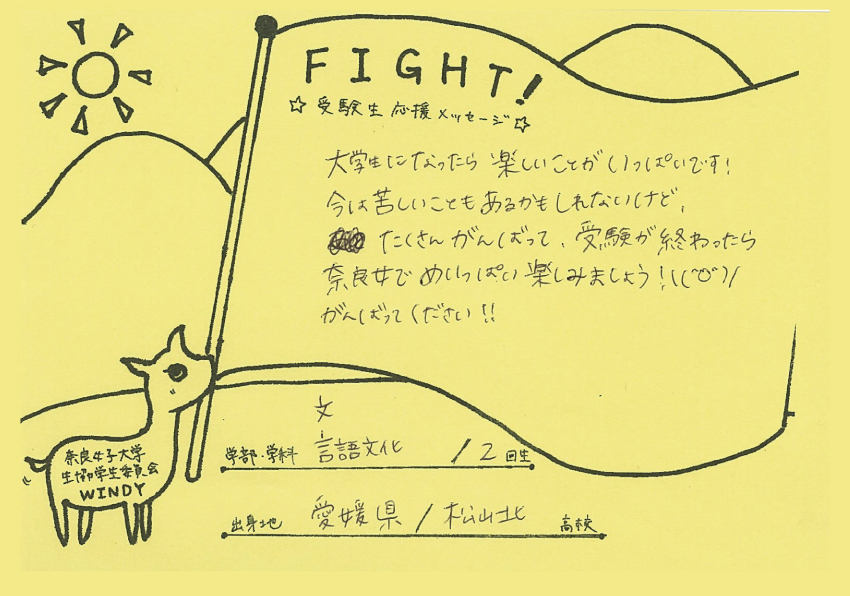 FIGHT!
☆受験生応援メッセージ☆
大学生になったら楽しいことがいっぱいです!
今は苦しいこともあるかもしれないけど、
たくさんがんばって、受験が終わったら
奈良女でめいっぱい楽しみましょう!\(^o^)/
がんばってください!!
文
学部・学科 言語文化 / 2 回生
出身地 愛媛県 / 松山北 高校
奈良女子大学
生協学生委員会
WINDY